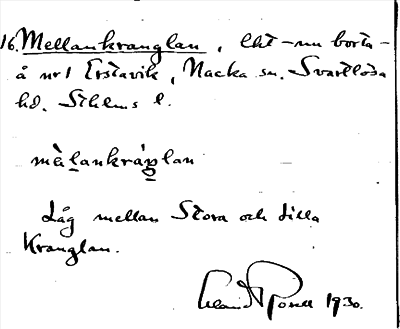 16. Mellankranglan, lht – nu borta –
å nr 1 Erstavik, Nacka sn. Svartlösa
hd. Sthlms l.
mèlankráŋlan
Låg mellan Stora och Lilla
Kranglan.
1930.